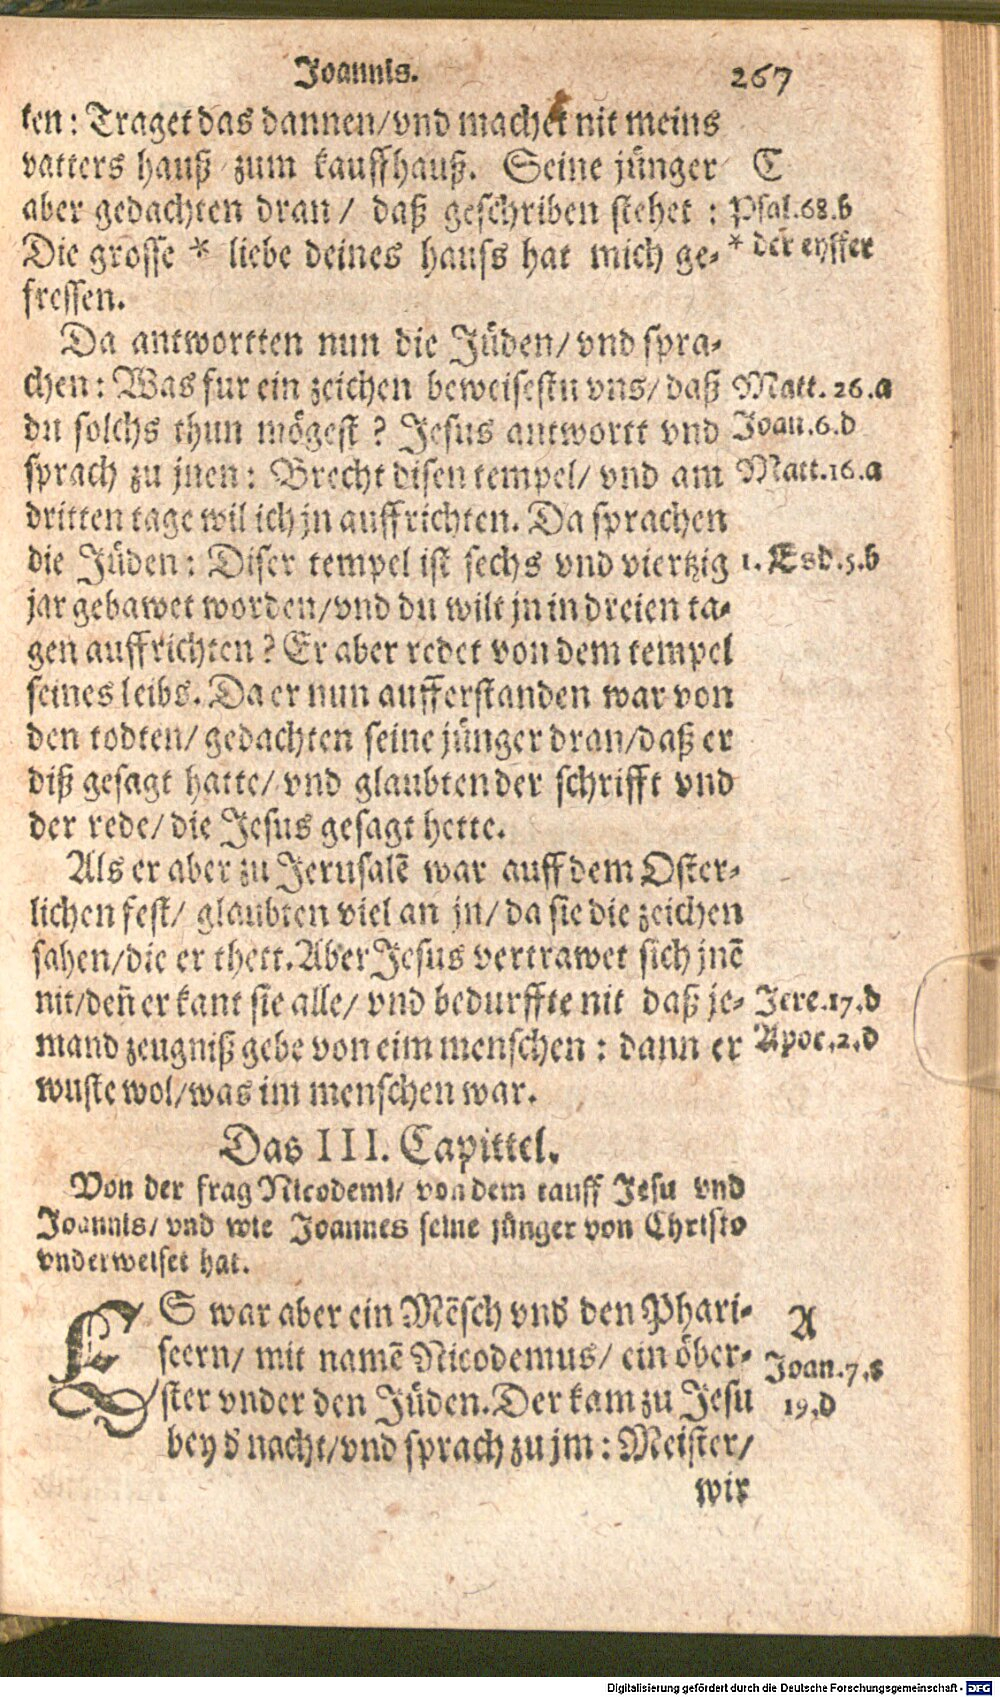 Joannis. 267
ten: Traget das dannen/vnd machet nit meins
vatters hauß zum kauffhauß. Seine jünger C
aber gedachten dran/ daß geschriben stehet: Psal.68.b
Die grosse * liebe deines hauss hat mich ge- * der eyffer
fressen.
Da antwortten nun die Jüden/ vnd spra-
chen: Was fur ein zeichen beweisestu vns/ daß Matt. 26.a
du solchs thun mögest? Jesus antwortt vnd Joan.6.d
sprach zu jnen: Brecht disen tempel/ vnd am Matt.16.a
dritten tage wil ich jn auffrichten. Da sprachen
die Jüden: Diser tempel ist sechs vnd viertzig 1. Esd.5.b
jar gebawet worden/vnd du wilt jn in dreien ta-
gen auffrichten? Er aber redet von dem tempel
seines leibs. Da er nun aufferstanden war von
den todten/ gedachten seine jünger dran/daß er
diß gesagt hatte/ vnd glaubten der schrifft vnd
der rede/ die Jesus gesagt hette.
Als er aber zu Jerusalē war auff dem Oster-
lichen fest/ glaubten viel an jn/ da sie die zeichen
sahen/die er thett. Aber Jesus vertrawet sich jnē
nit/deñ er kant sie alle/ vnd bedurffte nit daß je- Jere.17.d
mand zeugniß gebe von eim menschen: dann er Apoc.2.d
wuste wol/was im menschen war.
Das III. Capittel.
Von der frag Nicodemi/ von dem tauff Jesu vnd
Joannis/ vnd wie Joannes seine jünger von Christo
vnderweiset hat.
ES war aber ein Mēsch vnd den Phari- A
seern/ mit namē Nicodemus/ ein öber- Joan.7.
ster vnder den Jüden. Der kam zu Jesu 19.d
bey d nacht/vnd sprach zu jm: Meister/
wir
Digitalisierung gefördert durch die Deutsche Forschungsgemeinschaft - DFG